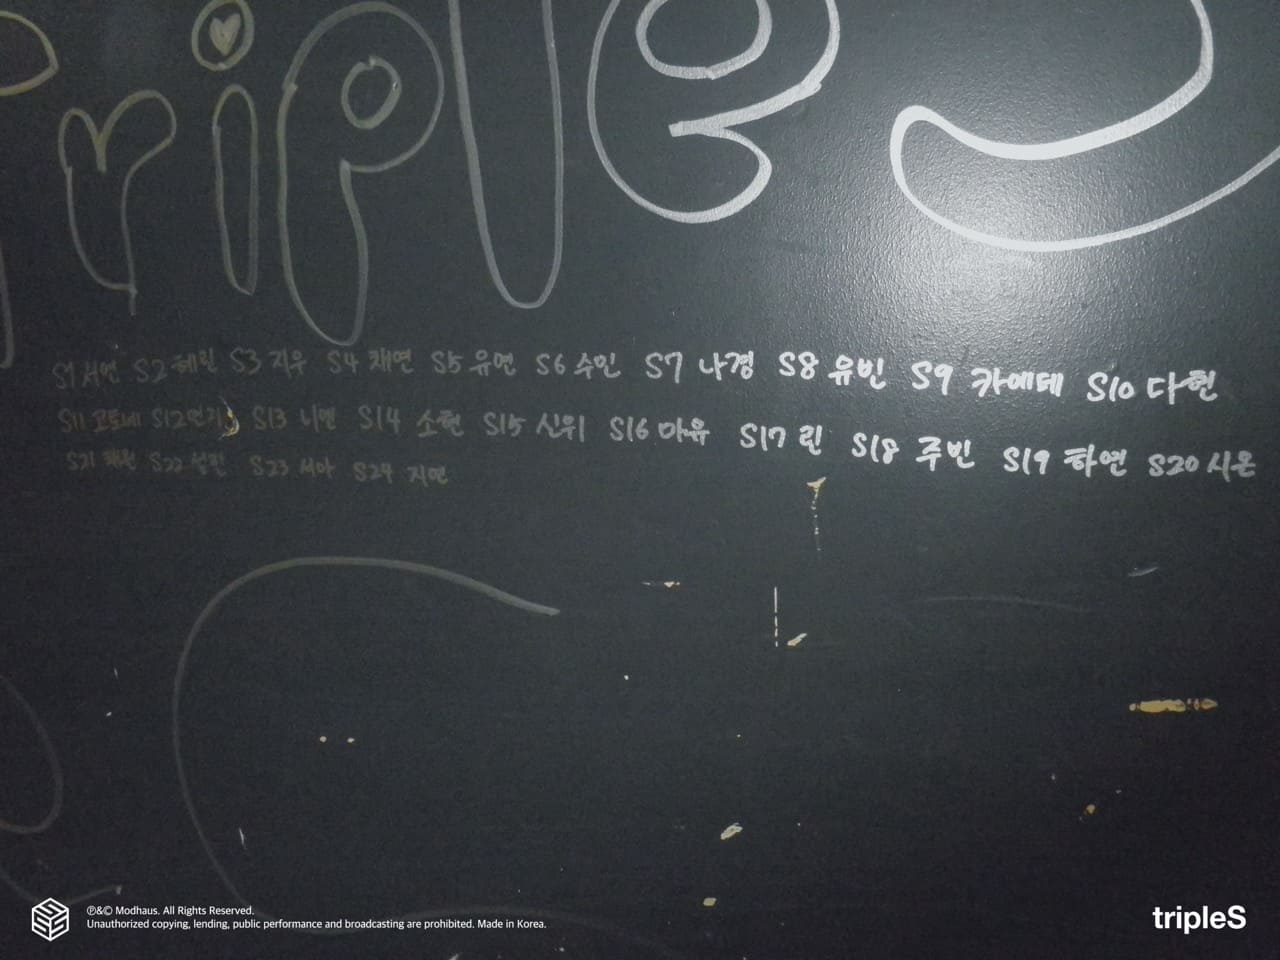 tripleS
S1 서연 S2 혜린 S3 지우 S4 채연 S5 유연 S6 수민 S7 나경 S8 유빈 S9 카에데 S10 다현
S11 코토네 S12 연지 S13 니엔 S14 소현 S15 신위 S16 마유 S17 린 S18 주빈 S19 하연 S20 시온
S21 채원 S22 설린 S23 서아 S24 지연
℗&© Modhaus. All Rights Reserved.
Unauthorized copying, lending, public performance and broadcasting are prohibited. Made in Korea.
tripleS